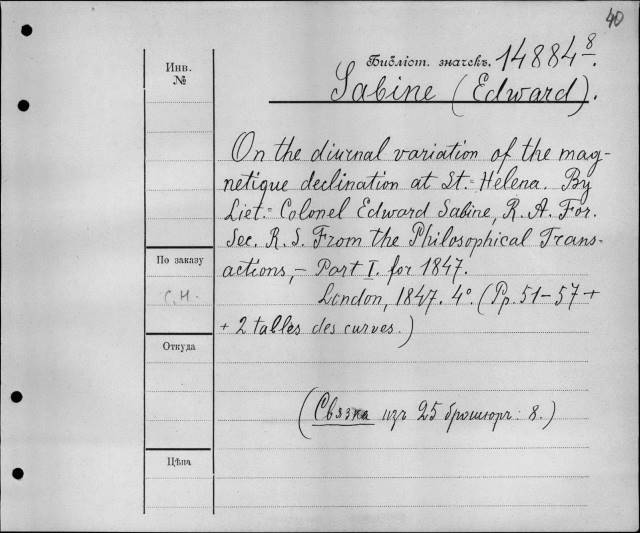 40
Библіот. значекъ. 14884⁸.
Инв.
№
Sabine (Edward).
On the diurnal variation of the mag-
netique declination at St.= Helena. By
Liet.= Colonel Edward Sabine, R. A. For.
Sec. R. S. From the Philosophical Trans-
actions,- Part I. for 1847.
London, 1847. 4°. (Pp. 51-57 +
+ 2 tables des curves.)
По заказу
С.Н.
Откуда
(Связка изъ 25 брошюръ: 8.)
Цѣна